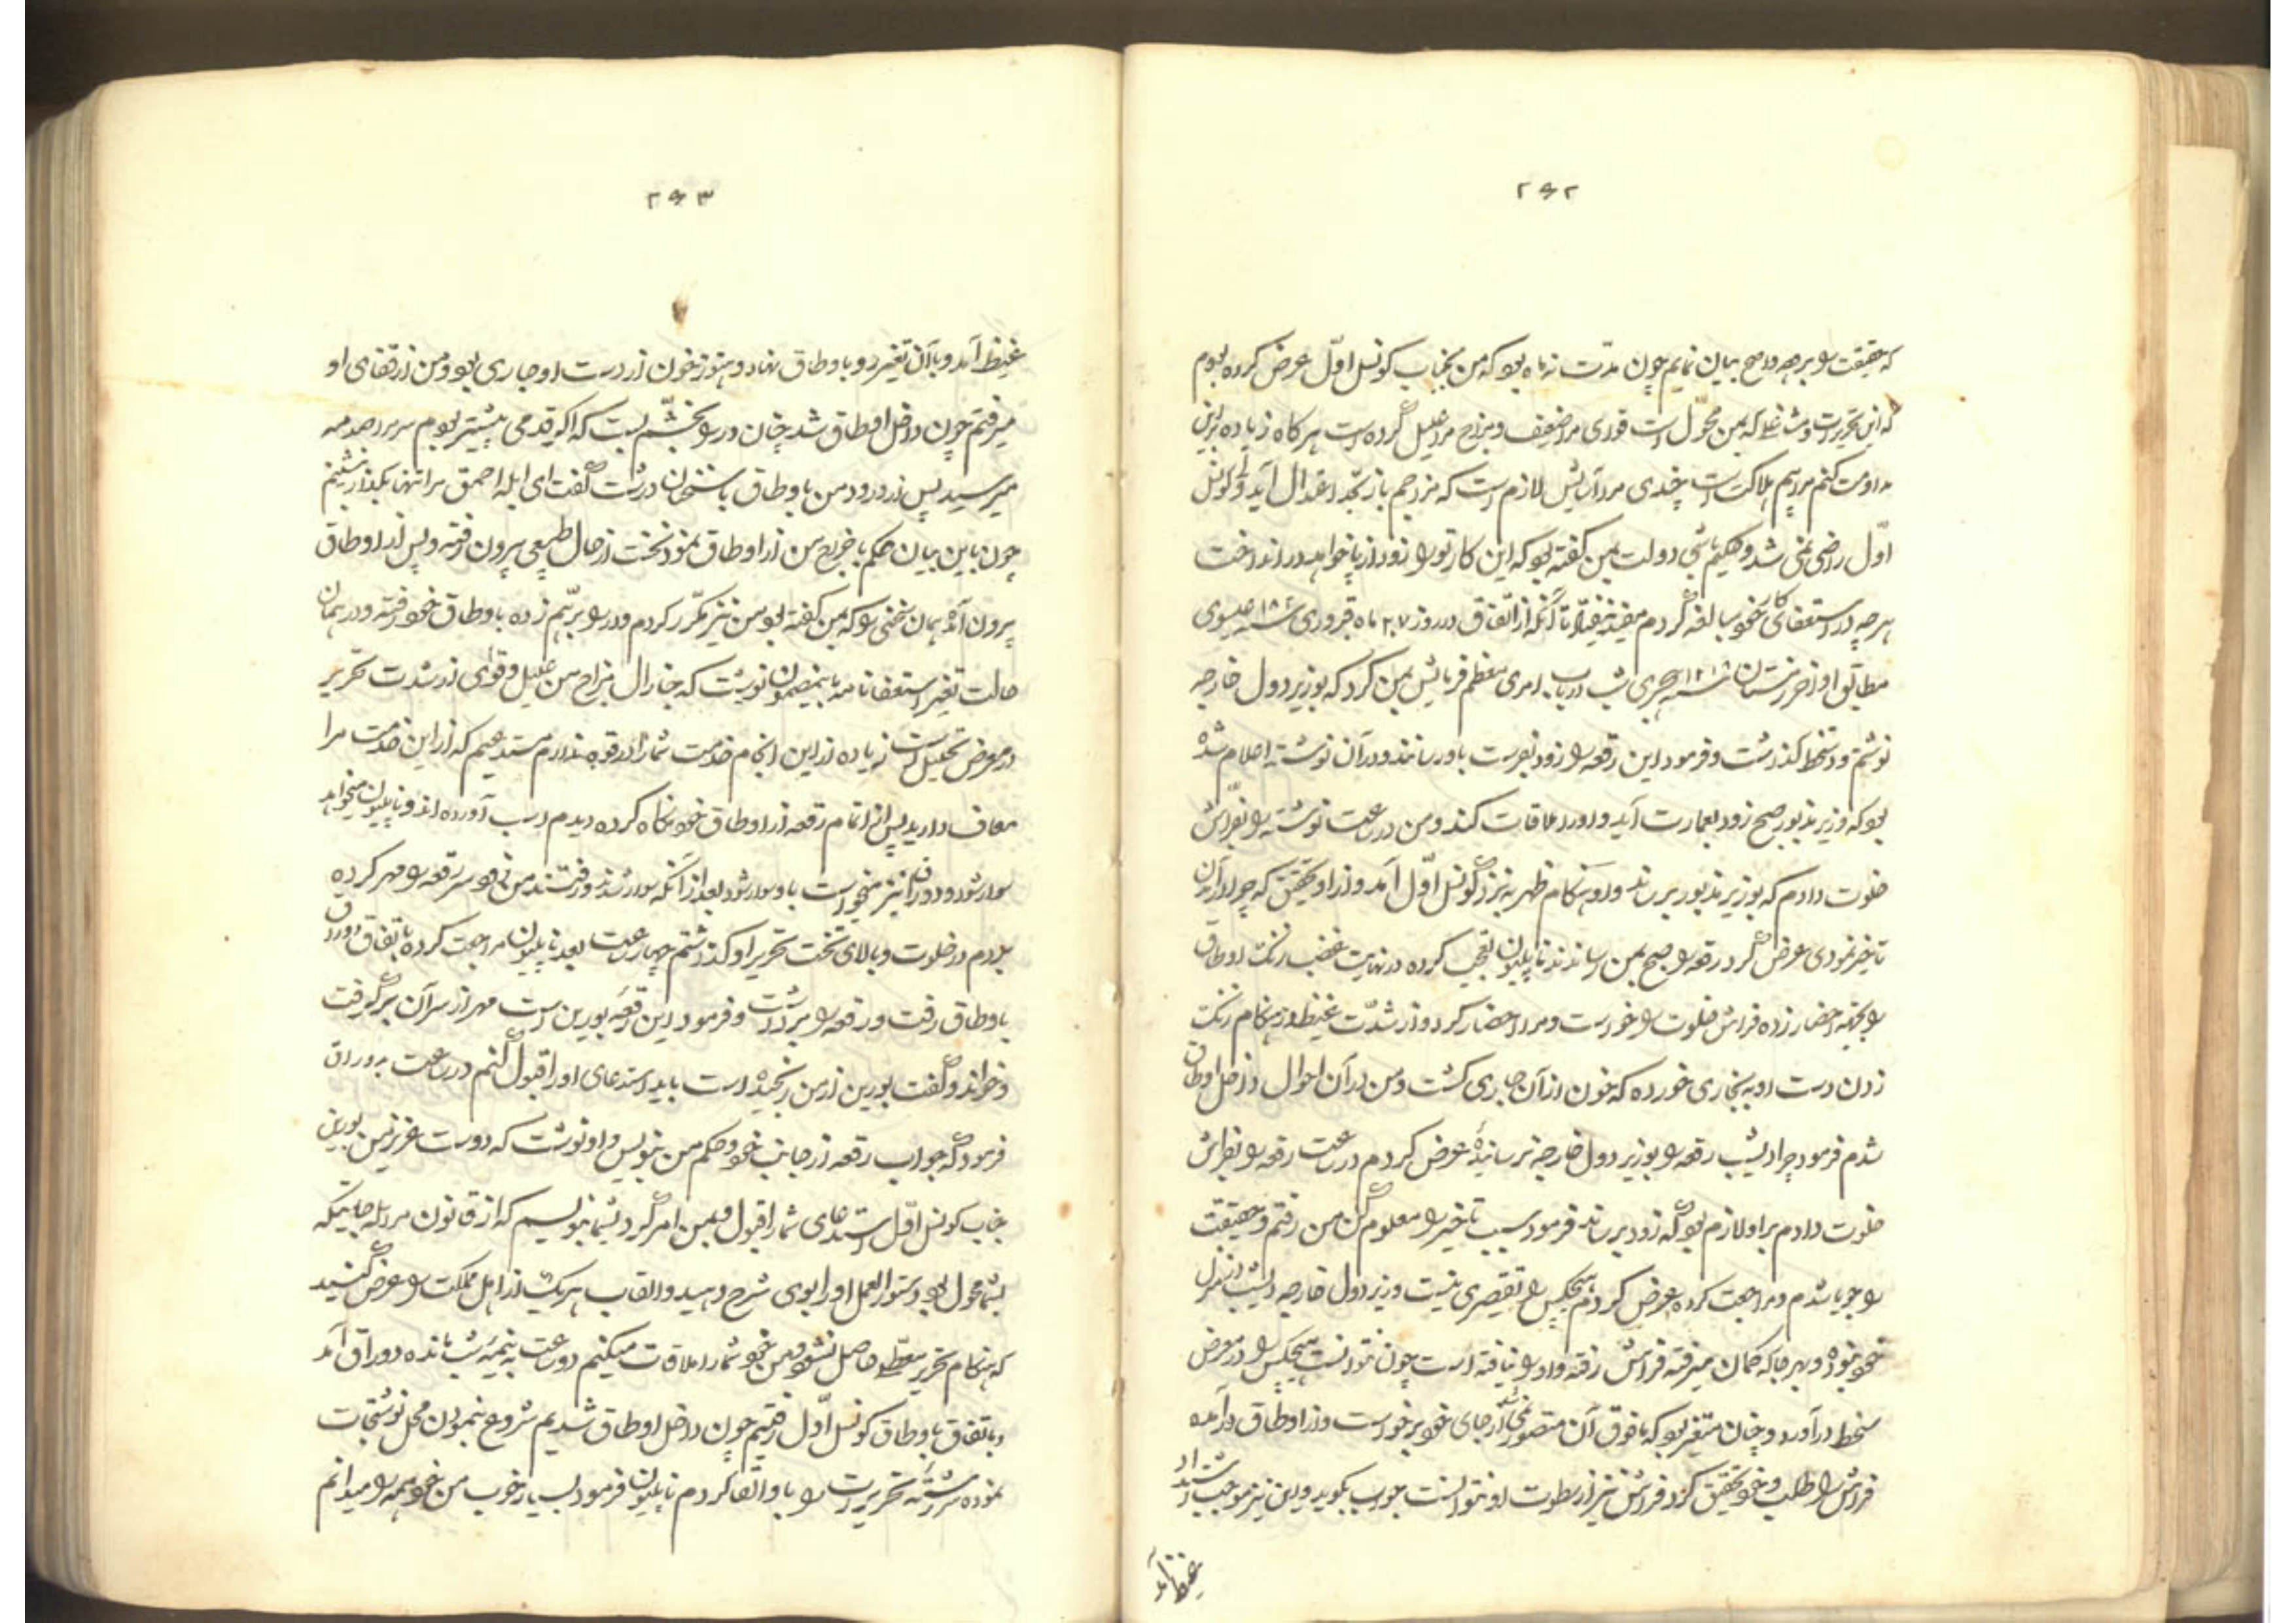 ۲۶۲
که حقیقت را بر وجه واضح بیان نمایم چون مدت نه ماه بود که من بجناب کونسل اوّل عرض کرده بودم
که این تحریرات و مشاغل که بمن محوّل است قوای مرا ضعیف و مزاج مرا علیل کرده است هر گاه زیاده براین
مداومت کنم مرا بیم هلاکت است چندی مرا آسایش لازم است که مزاجم باز بحدّ اعتدال آید و کونسل
اوّل راضی نمی شد و حکیم باشی دولت بمن گفته بود که این کار تو را زود از پا خواهد در انداخت
هر چه در استعفای خود مبالغه کردم مفید نیفتاد تا آنکه از اتّفاق در روز ۲۷ ماه فروری عیسوی
مطابق اواخر زمستان هجری شب در باب امری معظم فرمایش بمن کرد که بوزیر دول خارجه
نوشتم و دستخط گذاشت و فرمود این رقعه را زود بفرست باو رسانند و در آن نوشته اعلام شده
بود که وزیر مذبور صبح زود بعمارت آید و او را ملاقات کند و من در ساعت نوشته را بفرّاش
خلوت دادم که بوزیر مذبور برساند و او هنگام ظهر به نزد کونسل اوّل آمد و از او تحقیق که چرا در آمدن
تاخیر نمودی عرض کرد رقعه را صبح بمن رساندند ناپلیون تعجب کرده در نهایت غضب زنک اوطاق
را بجهه احضار زده فراش خلوت را خواست و مرا احضار کرد و از شدّت غیظ در هنگام زنک
زدن دست او به نجاری خورده که خون از آن جاری گشت و من در آن احوال داخل اوطاق
شدم فرمود چرا دیشب رقعه را بوزیر دول خارجه نرساندی عرض کردم در ساعت رقعه را بفراش
خلوت دادم براو لازم بود که زود برساند فرمود سبب تاخیر را معلوم کن من رفتم و حقیقت
را جویا شدم و مراجعت کرده عرض کردم هیچکس را تقصیری نیست وزیر دول خارجه دیشب در منزل
خود نبوده و بهر جا که گمان میرفته فراش رفته و او را نیافته است چون نتوانست هیچکس را در معرض
سخط در آورد و چنان متغیر بود که ما فوق آن متصور نمی شد از جای خود برخواست و از اوطاق در آمده
فراش را طلب و خود تحقیق کرد فراش نیز از سطوت او نتوانست جواب بگوید و این نیز موجب اشتداد
غیظ آمد
۲۶۳
غیظ آمد و با آن تغیر رو باوطاق نهاد و هنوز خون از دست او جاری بود و من از قفای او
میرفتم چون داخل اوطاق شد چنان در را بخشم بست که اگر قدمی پیشتر بودم سر مرا صدمه
میرسید پس از ورود من باوطاق با سخنان درشت گفت ای ابله احمق مرا تنها بگذار بنشینم
چون باین بیان حکم باخراج من از اوطاق نمود نخست از حال طبیعی بیرون رفته و پس از اوطاق
بیرون آمده همان سخنی را که بمن گفته بود من نیز مکرّر کردم و در را برهم زده باوطاق خود رفته و در همان
حالت تغیر استعفا نامه باینمضمون نوشت که جنارال مزاج من علیل و قوای از شدت تحریر
در معرض تحلیل است زیاده از این انجام خدمت شما را در قوه ندارم مستدعیم که از این خدمت مرا
معاف دارید پس از اتمام رقعه از اوطاق خود نگاه کرده دیدم اسب آورده اند و ناپلیون میخواهد
سوار شود و دوراق نیز میخواست با او سوار شود بعد از آنکه سوار شدند و رفتند من نیز سر رقعه را مهر کرده
بردم در خلوت و بالای تخت تحریر او گذاشتم چهار ساعت بعد ناپلیون مراجعت کرده باتفاق دوراق
باوطاق رفت و رقعه را برداشت و فرمود این رقعه بورین است مهر از سر آن برگرفت
و خواند و گفت بورین از من رنجیده است باید استدعای او را قبول کنم در ساعت بدوراق
فرمود که جواب رقعه از جانب خود و حکم من بنویس و او نوشت که دوست عزیز من بورین
جناب کونسل اوّل استدعای شما را قبول و بمن امر کرد بشما بنویسم که از قانون مراسله جاتیکه
بشما محول بود دستورالعمل او را بوی شرح دهید و القاب هر یک از اهل مملکت را عرض کنید
که هنگام تحریر معطّلی حاصل نشود و من خود شما را ملاقات میکنم دو ساعت به نیمه شب مانده دوراق آمد
و باتفاق باوطاق کونسل اوّل رفتیم چون داخل اوطاق شدیم شروع بنمودن محل نوشتجات
نموده سررشته تحریرات را باو القا کردم ناپلیون فرمود بسیار خوب من خود همه را میدانم